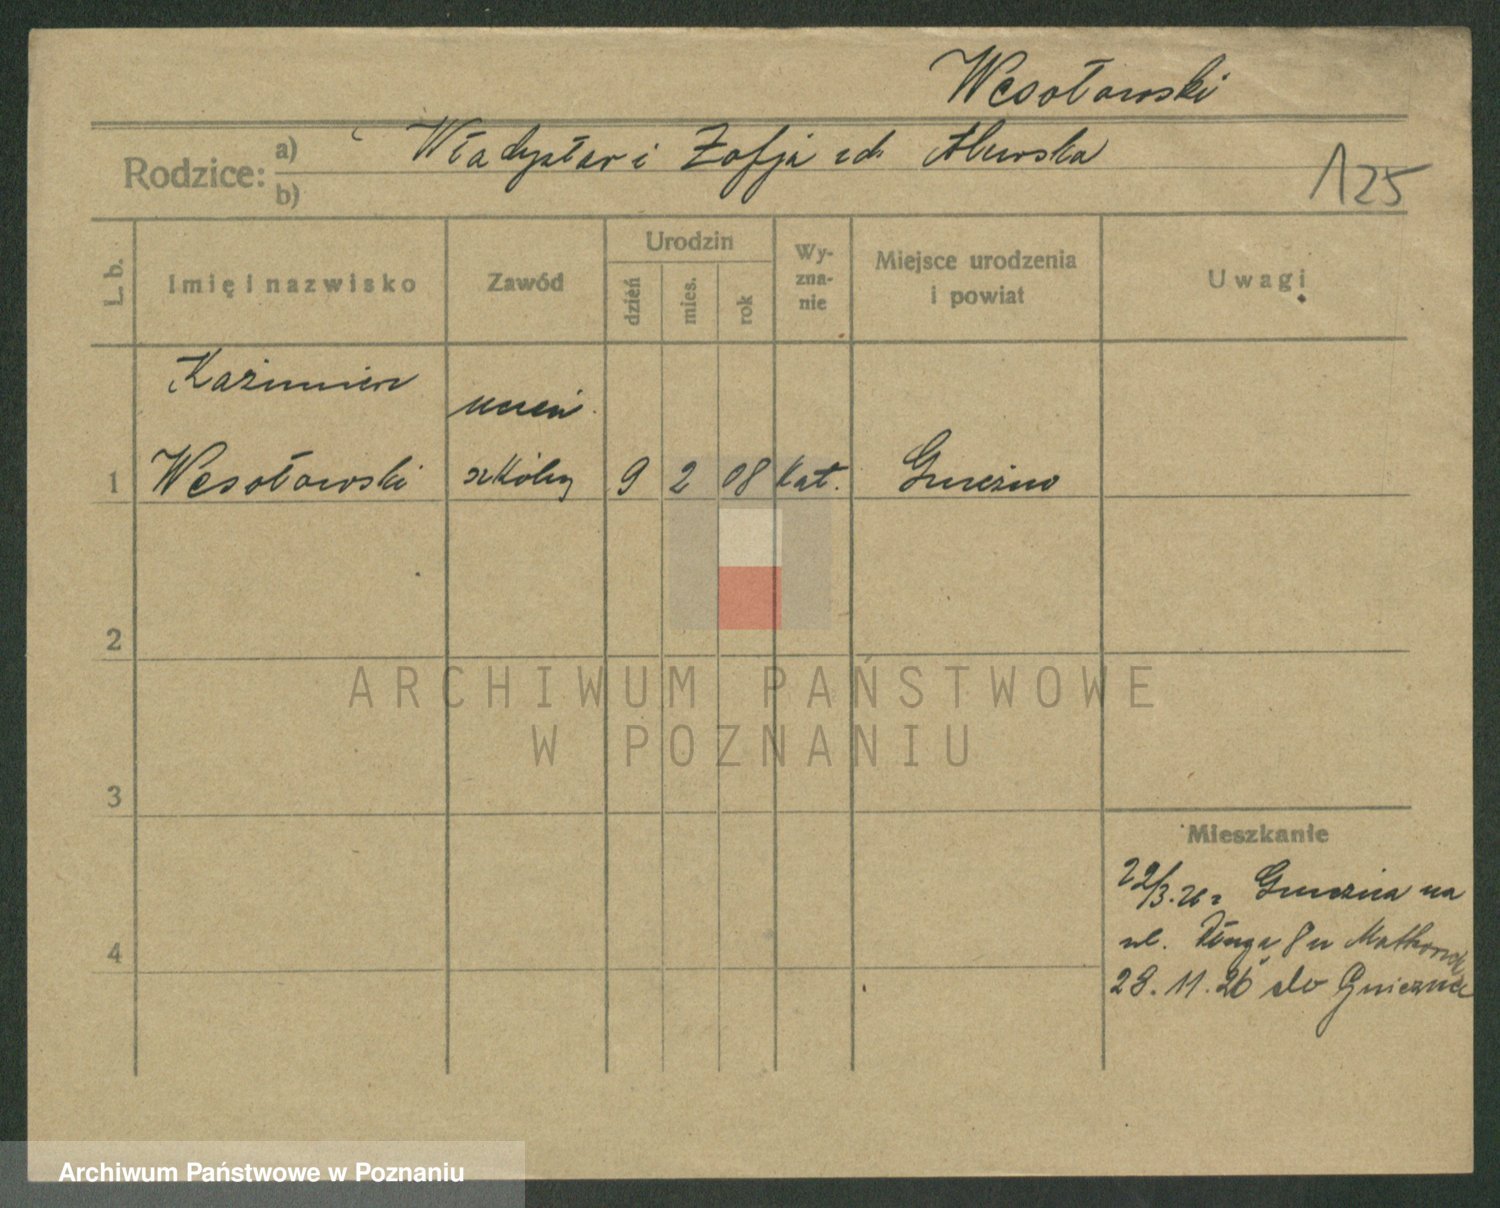 Wesołowski
Rodzice: a) Władysław i Zofja zd.
b)
125
L. b.
Imię i nazwisko
Zawód
Urodzin
dzień
mies.
rok
Wy-
zna-
nie
Miejsce urodzenia
i powiat
Uwagi
Kazimierz
uczeń
1 Wesołowski szkólny 9 2 08 kat. Gniezno
2
3
4
Mieszkanie
22/3.26 z Gniezna na
ul. Długa 8 u
28.11.26 do Gniezna
ARCHIWUM PAŃSTWOWE
W POZNANIU
Archiwum Państwowe w Poznaniu